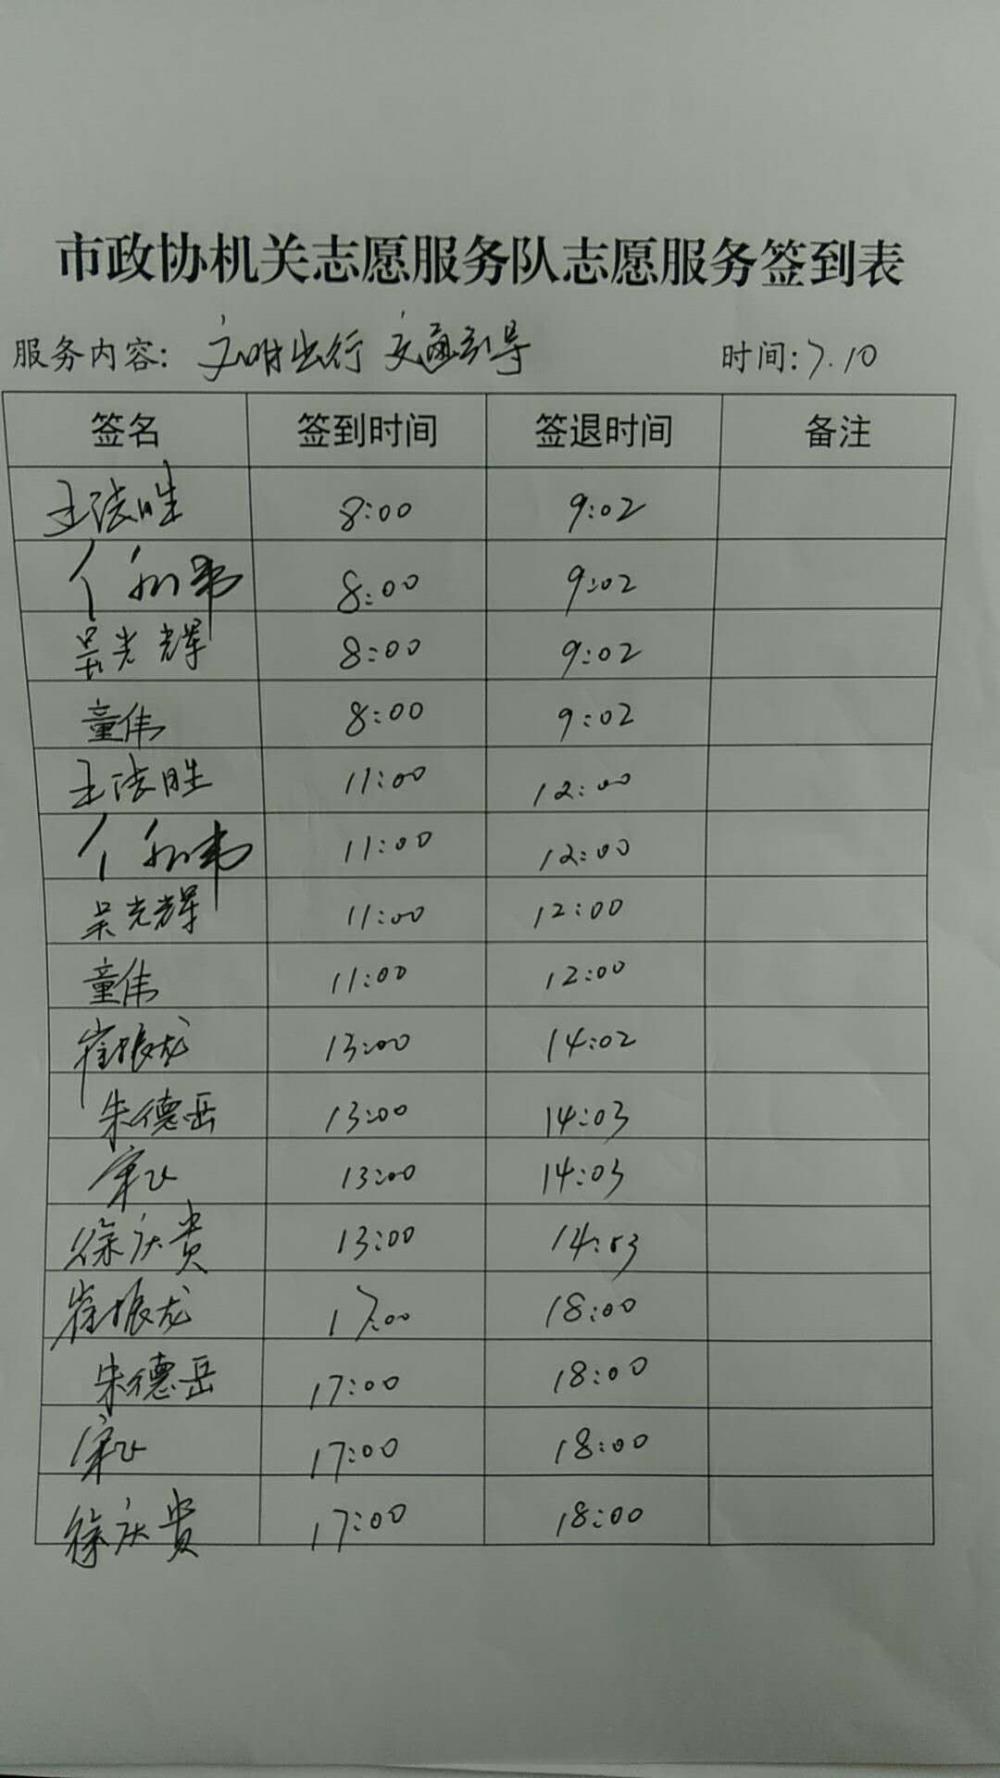 市政协机关志愿服务队志愿服务签到表
服务内容: 文明出行 交通引导 时间: 7.10
签名 签到时间 签退时间 备注
王法胜 8:00 9:02
8:00 9:02
吴光辉 8:00 9:02
童伟 8:00 9:02
王法胜 11:00 12:00
11:00 12:00
吴光辉 11:00 12:00
童伟 11:00 12:00
崔振龙 13:00 14:02
朱德岳 13:00 14:03
13:00 14:03
徐庆贵 13:00 14:03
崔振龙 17:00 18:00
朱德岳 17:00 18:00
17:00 18:00
徐庆贵 17:00 18:00